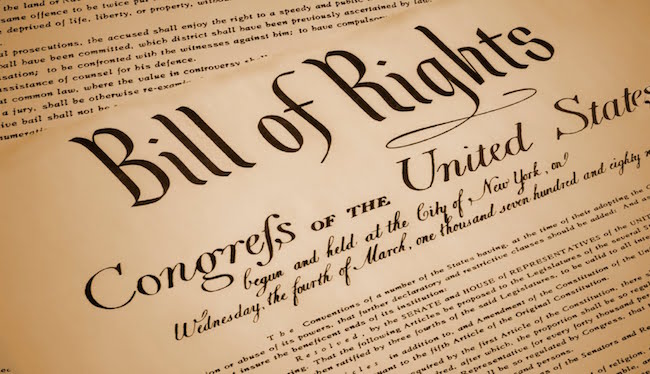 the land or Na
same offence to be twice put
deprived of life, liberty, or property, withou
prosecutions, the accused shall enjoy the right to a speedy and public
all have been committed, which district shall have been previously ascertained by law
sation; to be confronted with the witnesses against him; to have compulsory
assistance of counsel for his defence.
common law, where the value in controversy shall
a jury, shall be otherwise re-exami
ive bail shall not be
numerati
Bill of Rights
Congreſs OF THE United States
begun and held at the City of New York, on
Wednesday, the fourth of March, one thousand seven hundred and eighty n
The Conventions of a number of the States having, at the time of their adopting the C
or abuse of its powers, that further declaratory and restrictive clauses should be added: And as
insure the beneficent ends of its institution.
Resolved, by the SENATE and HOUSE of REPRESENTATIVES of the UNIT
ring, That the following Articles be proposed to the Legislatures of the several S
when ratified by three fourths of the said Legislatures, to be valid to all inte
in addition to, and Amendment of the Constitution of the Uni
to the fifth Article of the Original Constitution.
required by the first Article of the Constitution, there sh
, after which, the proportion shall be so regu
Representative for every forty thousand pers
be so regulated by Congress, that
Senators and Re
of religion,